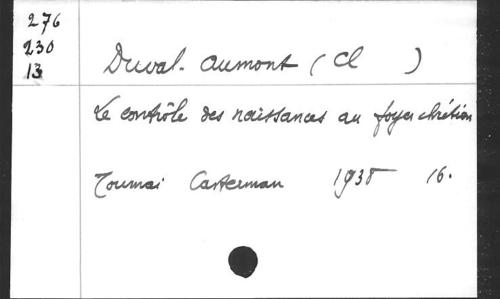 276
230
13
Duval-Aumont (Cl )
Le contrôle des naissances au foyer chrétien
Tournai Casterman 1938 16.